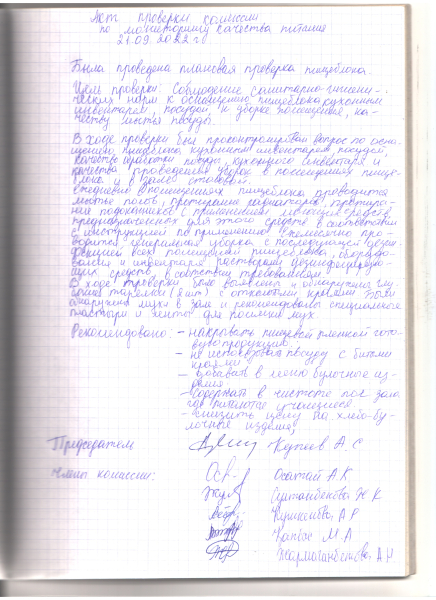 Акт проверки комиссии
по мониторингу качества питания
21.09.2022 г
Была проведена плановая проверка пищеблока.
Цель проверки: Соблюдение санитарно-гигиени-
ческих норм к оснащению пищеблока кухонным
инвентарем, посудой и уборке помещения, ка-
честву мытья посуды.
В ходе проверки был просконтролирован вопрос по осна-
щению пищеблока кухонным инвентарем, посудой,
качество обработки посуды, кухонного инвентаря и
качества проведения уборок в помещениях пище-
блока и в зале столовой.
Ежедневно в помещениях пищеблока проводится
мытье полов, протирание радиаторов, протира-
ние подоконников с применением моющих средств,
предназначенных для этого средств в соответствии
с инструкцией по применению. Ежемесячно про-
водится генеральная уборка с последующей дезин-
фекцией всех помещений пищеблока, оборудо-
вания и инвентаря растворами дезинфицирую-
щих средств, в соответствии требованиям.
В ходе проверки было выявлено и обнаружено
тарелки с отколотыми краями. Были
обнаружены мухи в зале и рекомендовано специальные
пластыри и ленты для поимки мух
Рекомендовано: - накрывать пищевой пленкой гото-
вую продукцию.
- не использовать посуду с битыми
краями
- добавить в меню булочное из-
делия
- содержать в чистоте пол зала
где питаются учащиеся
- снизить цену на хлебо-бу-
лочные изделия.
Председатель А. С
члены комиссии: Осатай А.К
Султанбекова Ж К
А. Р
М. А
Жармаганбетова А Н